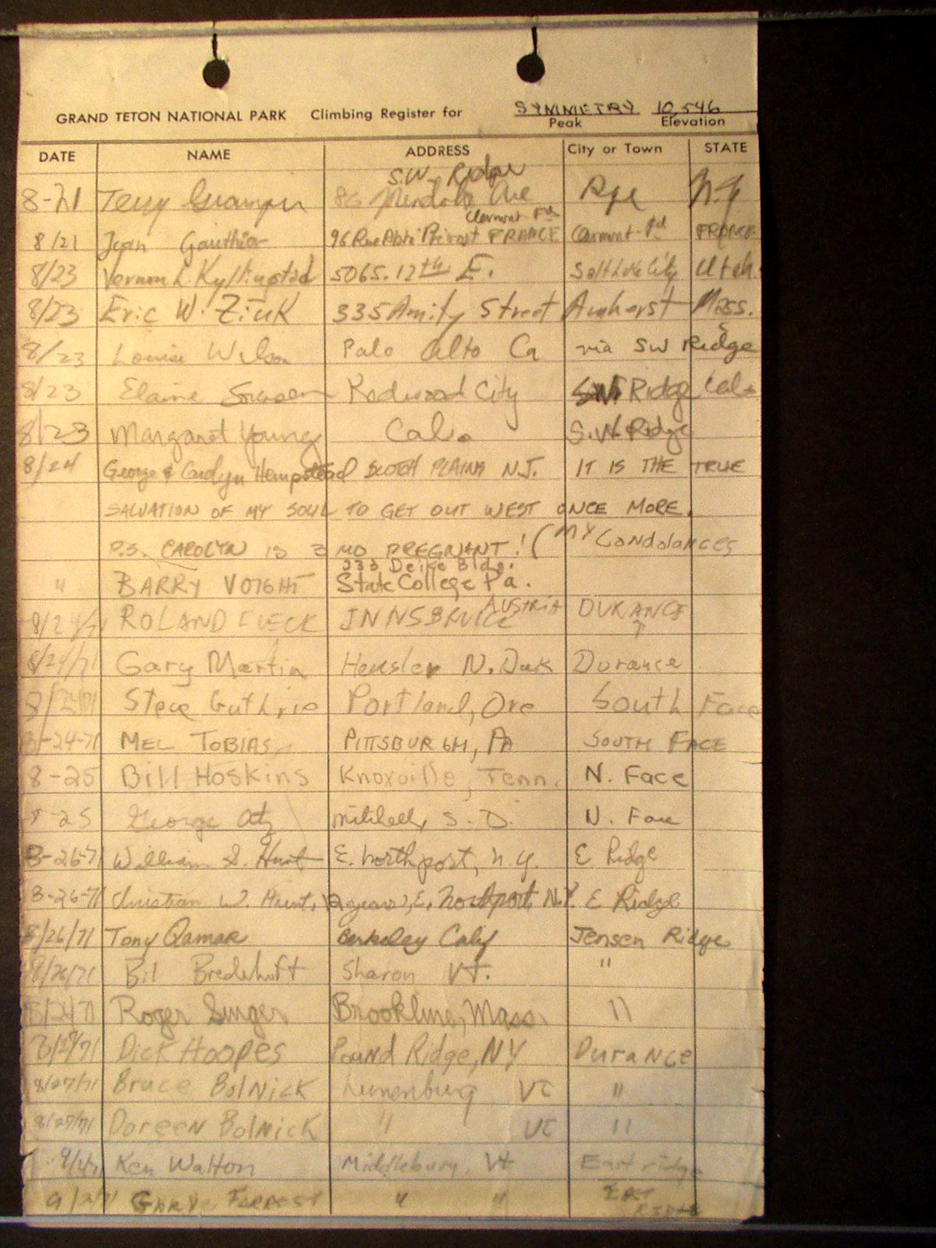 GRAND TETON NATIONAL PARK Climbing Register for SYMMETRY Peak 10,546 Elevation
DATE NAME ADDRESS City or Town STATE
S.W. Ridge
8-21 Terry 86 Ave Rye N.Y
Clermont Fd
8/21 Jean Gauthier 96 Rue Abbé Prévost FRANCE Clermont-Fd FRANCE
8/23 Vernon L. Kyllingstad 506 S. 12th E. Salt Lake City Utah
8/23 Eric W. Zink 335 Amity Street Amherst Mass.
8/23 Louise Wilson Palo Alto Ca via SW Ridge
8/23 Elaine Redwood City SW Ridge Cal.
8/23 Margaret Young Cal. S.W. Ridge
8/24 George & Carolyn Hempstead SCOTCH PLAINS N.J. IT IS THE TRUE
SALVATION OF MY SOUL TO GET OUT WEST ONCE MORE.
P.S. CAROLYN IS 3 MO PREGNANT! (MY Condolances
233 Deike Bldg.
" BARRY VOIGHT State College Pa.
8/24/71 ROLAND INNSBRUCK AUSTRIA DURANCE ?
8/24/71 Gary Martin Hensler N. Dak Durance
Steve Guthrie Portland, Ore South Face
8-24-71 MEL TOBIAS PITTSBURGH, PA SOUTH FACE
8-25 Bill Hoskins Knoxville, Tenn. N. Face
8-25 George Mitchell, S.D. N. Face
8-26-71 William S. Hunt E. Northport, N.Y. E Ridge
8-26-71 Christian W. Hunt, 12 years), E. Northport, N.Y. E Ridge
8/26/71 Tony Qamar Berkeley Calif Jensen Ridge
8/26/71 Bil Bredehoft Sharon Vt. "
Roger Singer Brookline, Mass. "
Dick Hoopes Pound Ridge, NY Durance
8/27/71 Bruce Bolnick Lunenburg VT "
8/27/71 Doreen Bolnick " VT "
Ken Walton Middlebury, Vt East ridge
9/2/71 GARY FORREST " " EAST RIDGE